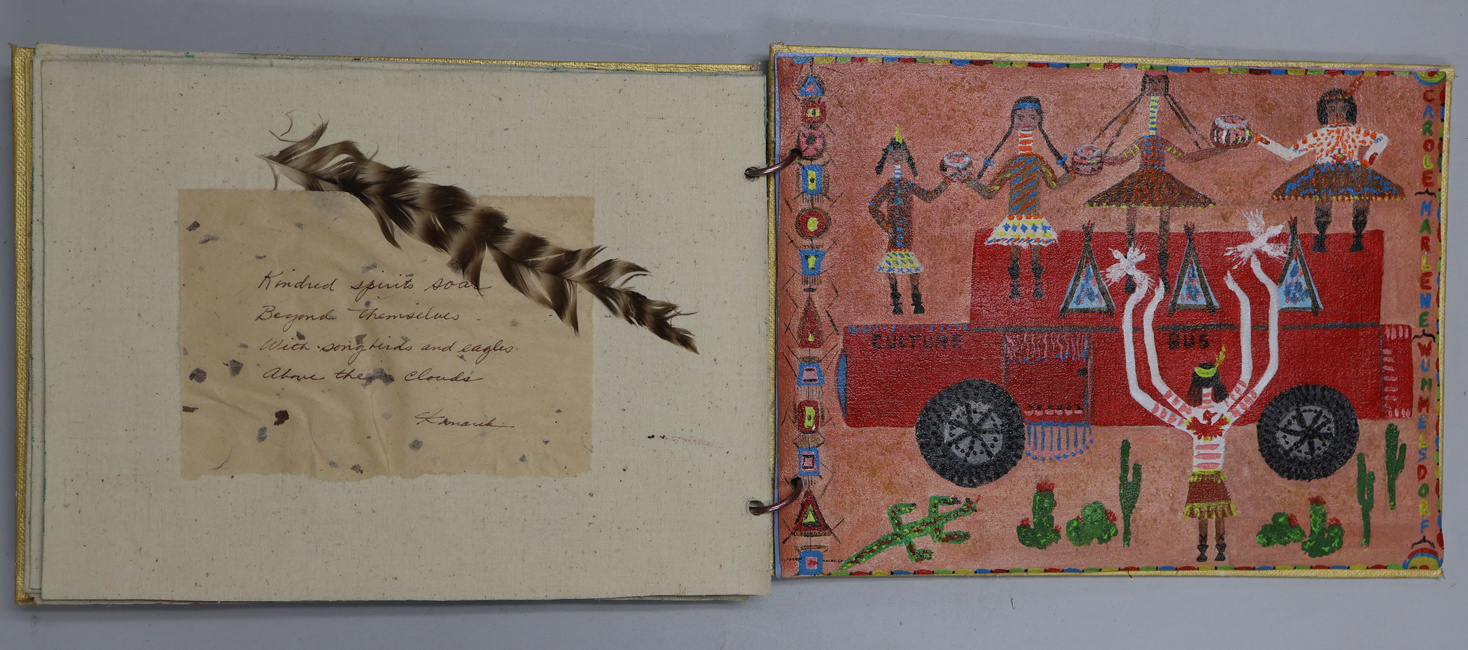 Kindred spirits soar
Beyond themselves
With songbirds and eagles
Above the clouds
CULTURE BUS
CAROLE MARLENE WUMMELSDORF